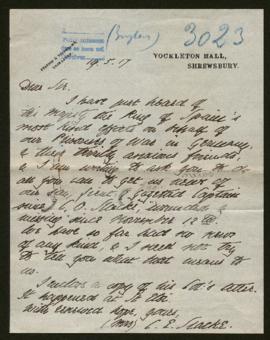 (Inglés)
3023
YOCKLETON HALL,
SHREWSBURY.
19.5.17
Dear Sir,
I have just heard of
his Majesty the King of Spain's
most kind efforts on behalf of
our Prisoners of War in Germany
& their terribly anxious friends,
& I am writing to ask you to do
all you can to get us news of
our boy, Captain
since C. O. Slacke,
missing since November 12th.
We have so far had no news
of any kind, & I need not try
to tell you what that means to
us.
I enclose a copy of his Col's letter.
It happened at
with renewed hope, yours,
(Mrs) C. E. Slacke.